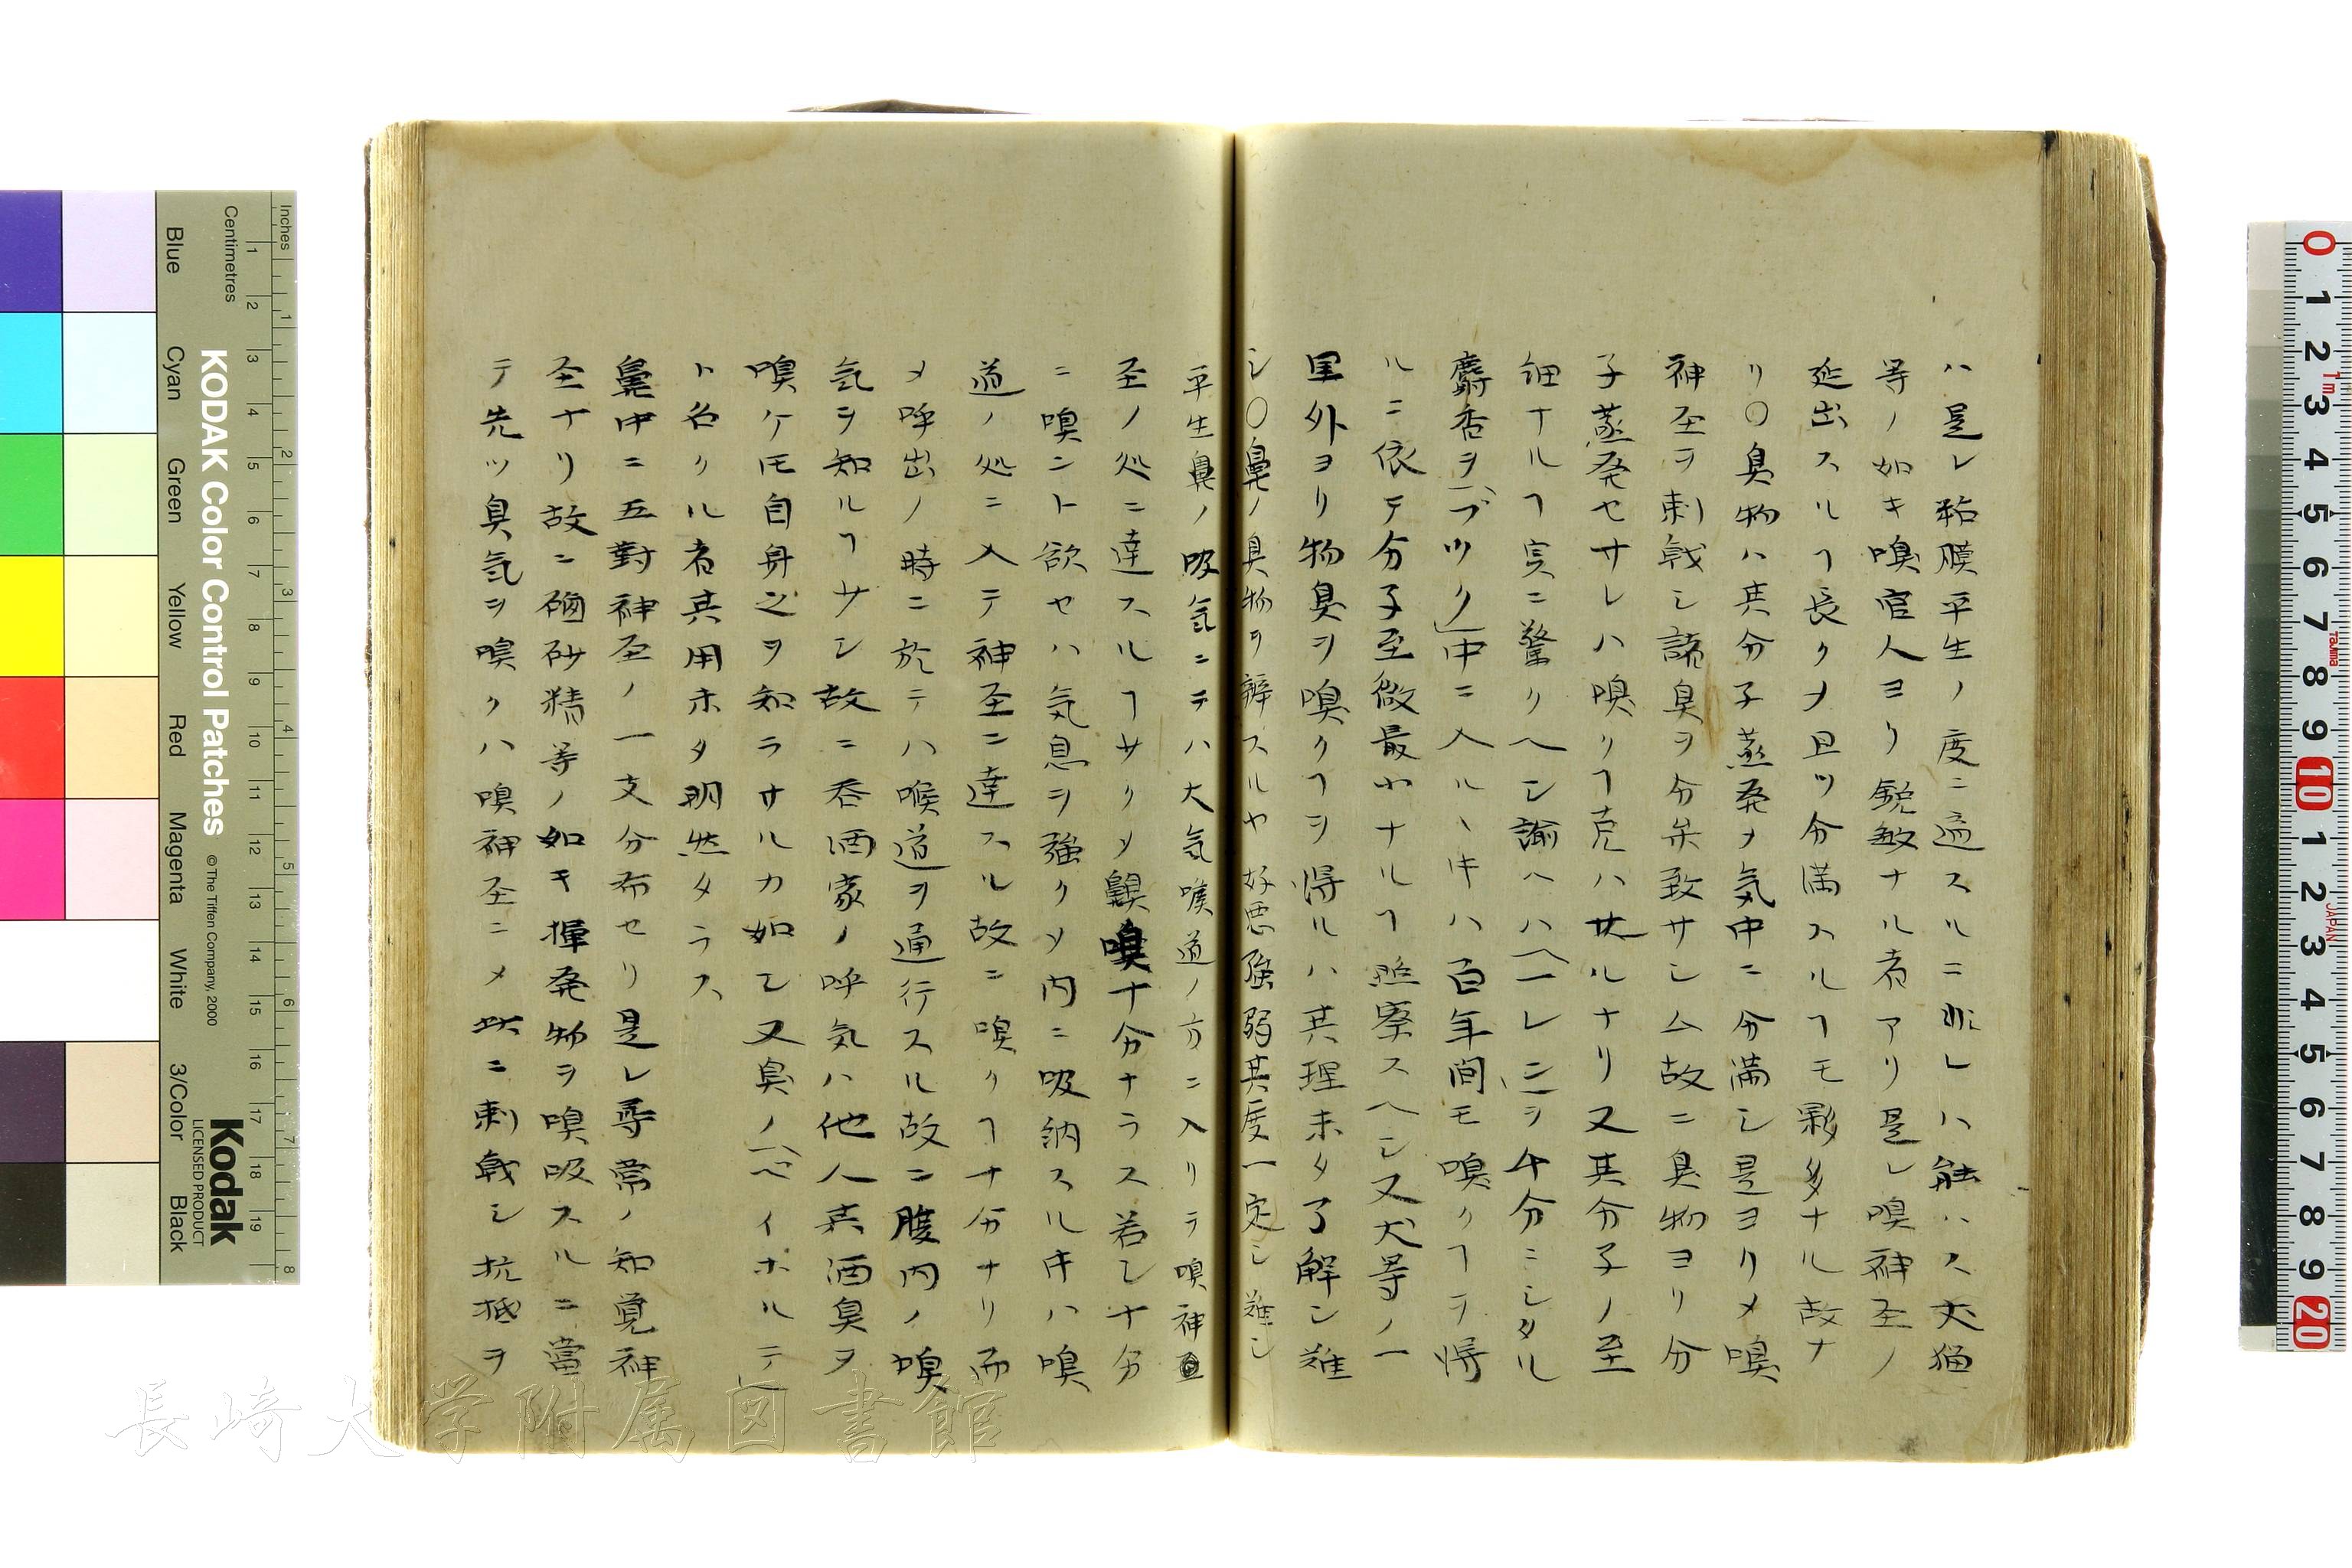 ハ是レ粘膜平生ノ度ニ適スルニ非レハ能ハス犬猫
等ノ如キ嗅官人ヨリ鋭敏ナル者アリ是レ嗅神圣ノ
延出スルヿ長クメ且ツ分満スルヿモ夥多ナル故ナ
リ〇臭物ハ其分子蒸発メ気中ニ分満シ是ヨリメ嗅
神圣ヲ刺戟シ諸臭ヲ分矢致サシム故ニ臭物ヨリ分
子蒸発セサレハ嗅クヿ克ハサルナリ又其分子ノ至
細ナルヿ実ニ驚クヘシ諭ヘハ「一レニ」ヲ午分ニシタル
麝香ヲ「ブツク」中ニ入ルヽキハ百年間モ嗅クヿヲ得
ルニ依テ分子至微最小ナルヿ照察スヘシ又犬等ノ一
里外ヨリ物臭ヲ嗅クヿヲ得ルハ其理未タ了解シ難
シ〇鼻ノ臭物ヲ辨スルヤ好悪強弱其度一定シ難シ
平生鼻ノ吸気ニテハ大気喉道ノ方ニ入リテ嗅神圣
圣ノ処ニ達スルヿサクメ嗅十分ナラス若シ十分
ニ嗅ント欲セハ気息ヲ強クメ内ニ吸納スルキハ嗅
道ノ処ニ入テ神圣ニ達スル故ニ嗅クヿナ分ナリ而
メ呼出ノ時ニ於テハ喉道ヲ通行スル故ニ腹内ノ嗅
気ヲ知ルヿサシ故ニ呑酒家ノ呼気ハ他人其酒臭ヲ
嗅ケ𪜈自身之ヲ知ラサルカ如シ又鼻ノ「ヘイホルテ」
ト名クル者其用未タ明然タラス
鼻中ニ五對神圣ノ一支分布セリ是レ尋常ノ知覚神
圣ナリ故ニ磠砂精等ノ如キ揮発物ヲ嗅吸スルニ當
テ先ツ臭気ヲ嗅クハ嗅神圣ニメ此ニ刺戟シ抗抵ヲ
KODAK Color Control Patches
© The Tiffen Company, 2000
Kodak
LICENSED PRODUCT
Inches
Centimetres
Blue
Cyan
Green
Yellow
Red
Magenta
White
3/Color
Black
長崎大学附属図書館